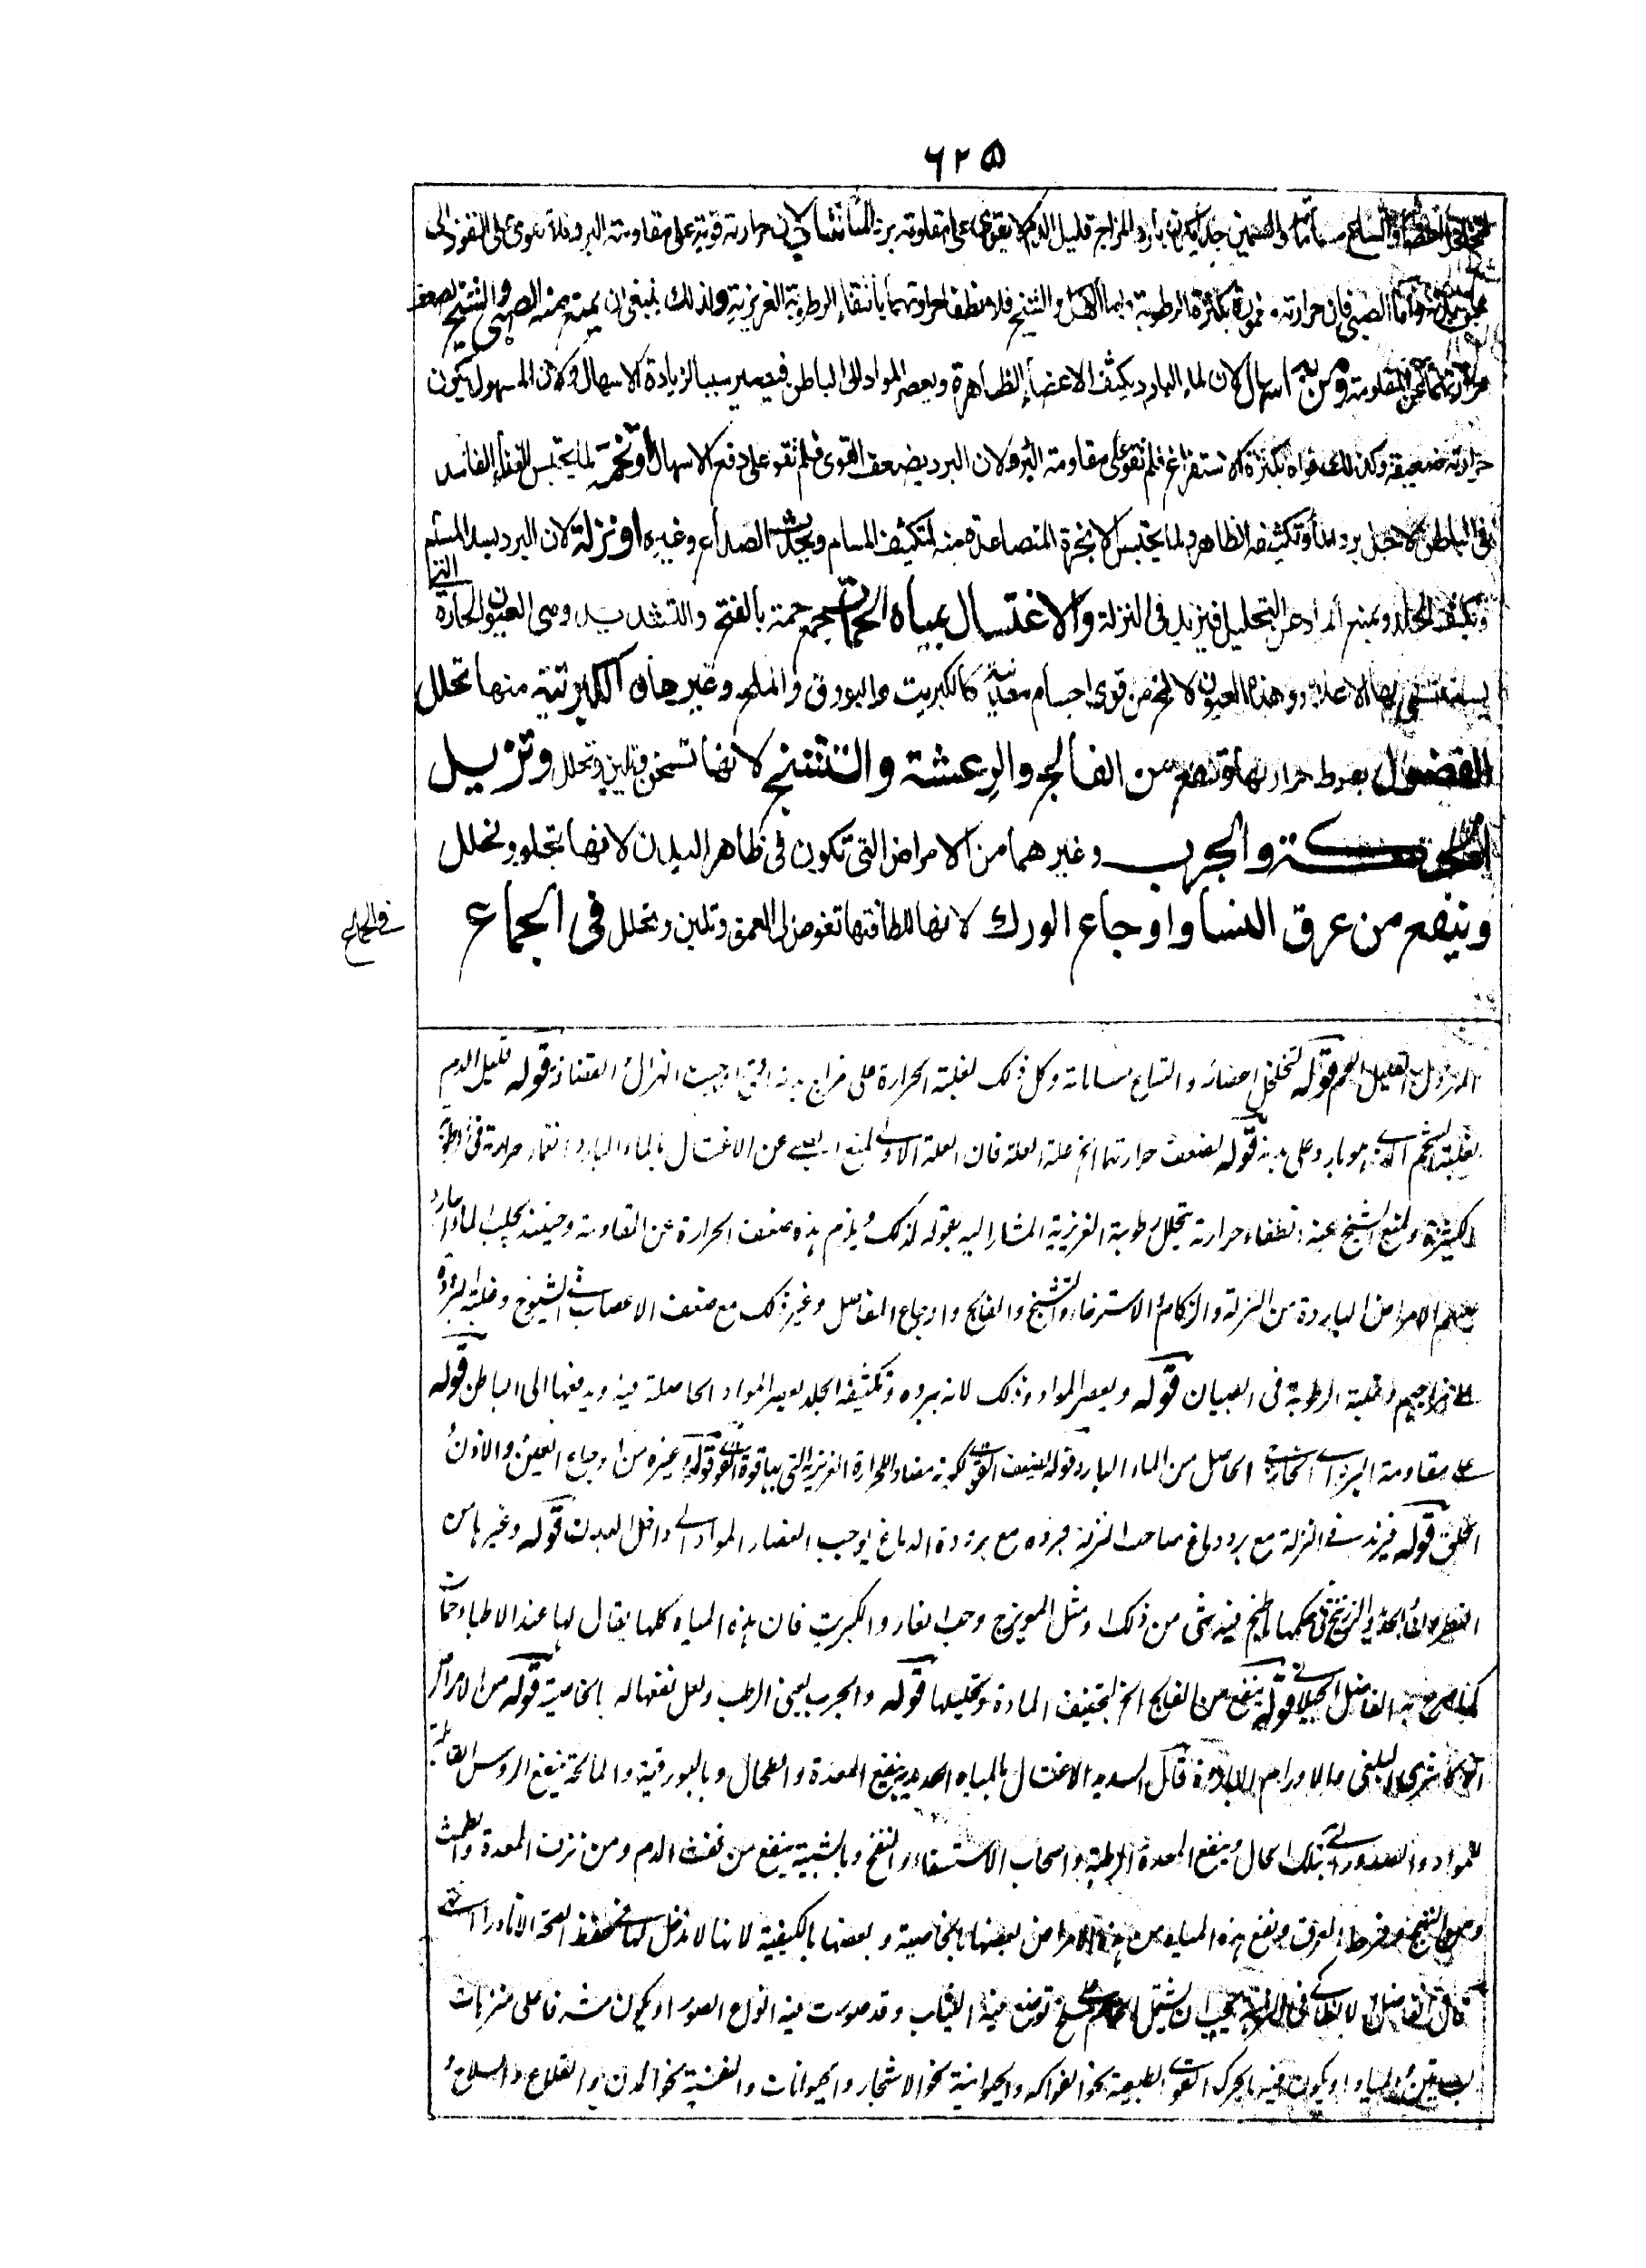 ٦٢٥
والسمين جدا يكون بارد المزاج قليل الدم لا يقوى على مقاومة برد الماء لان حرارته قوية على مقاومة البرد فلا تقوى على النفوذ الى
واما الصبي فان حرارته مغمورة بكثرة الرطوبة واما الكهل والشيخ فلانطفاء حرارتهما بانتفاء الرطوبة الغريزية ولذلك ينبغي ان يمنع منه الصبي والشيخ لضعف
حرارتهما عن المقاومة ومن به اسهال لان الماء البارد يكثف الاعضاء الظاهرة ويعصر المواد الى الباطن فيصير سببا لزيادة الاسهال ولان المسهول يكون
حرارته ضعيفة وكذلك قواه بكثرة الاستفراغ فلم تقو على مقاومة البرد ولان البرد يضعف القوى فلم تقو على دفع الاسهال او تخمة لما يحتبس الغذاء الفاسد
في الباطن لاجل برد الماء وتكثيفه الظاهر ولما يحتبس الابخرة المتصاعدة منه لتكثيف المسام ويحدث الصداع وغيره او نزلة لان البرد يسد المسام
ويكثف الجلد ويمنع المواد عن التحليل فيزيد في النزلة والاغتسال بمياه الحمات جمع حمة بالفتح والتشديد وهي العيون الحارة التي
يستشفي بها الاعلاء وهذه العيون لا تخلو من قوى اجسام معدنية كالكبريت والبورق والملح وغيرها والكبريتية منها تحلل
الفضول بفرط حرارتها وتنفع من الفالج والرعشة والتشنج لانها تسخن وتلين وتحلل وتزيل
الحكة والجرب وغيرهما من الامراض التي تكون في ظاهر البدن لانها تجلو وتحلل
وتنفع من عرق النسا واوجاع الورك لانها للطافتها تغوص الى العمق وتلين وتحلل في الجماع
في الجماع
المهزول القليل اللحم قوله لتخلخل اعضائه واتساع مساماته وكل ذلك لغلبة الحرارة على مزاج بدنه التي اوجبت الهزال القضافة قوله قليل الدم
لغلبة الشحم الذي هو بارد على بدنه قوله لضعف حرارتهما الخ علة العلة فان العلة الاولى لمنع الصبي عن الاغتسال بالماء البارد انغمار حرارته في الرطوبة
الكثيرة ولمنع الشيخ عنه انطفاء حرارته بتحلل رطوبة الغريزية المشار اليه بقوله لذلك ويلزم هذه ضعف الحرارة عن المقاومة وحينئذ يجلب الماء البارد
عليهم الامراض الباردة من النزلة والزكام والاسترخاء والتشنج والفالج واوجاع المفاصل وغير ذلك مع ضعف الاعصاب في الشيوخ وغلبة البرودة
على مزاجهم ولغلبة الرطوبة في الصبيان قوله ويعصر المواد وذلك لانه ببرده وتكثيفه الجلد يعصر المواد الحاصلة فيه ويدفعها الى الباطن قوله
على مقاومة البرد اي الخارجي الحاصل من الماء البارد قوله يضعف القوى لكونه مضاد للحرارة الغريزية التي بها قوة القوى قوله وغيره من اوجاع العين والاذن
الحلق قوله فيزيد في النزلة مع برد دماغ صاحب النزلة فبرده مع برودة الدماغ يوجب انعصار المواد الى داخل البدن قوله وغيرها من
النطرون والحديد والزرنيخ وفي حكمها ما طبخ فيه شيء من ذلك ومثل المويزج وحب الغار والكبريت فان هذه المياه كلها يقال لها عند الاطباء حمات
كما صرح به الفاضل الجيلاني قوله ينفع من الفالج الخ لتجفيف المادة وتحليلها قوله والجرب يعني الرطب ولعل نفعها له بالخاصية قوله من الامراض
الاخرى كالشري البلغمي والاورام الباردة قال السديد الاغتسال بالمياه الحديدية ينفع المعدة والطحال وبالبورقية والمالحة ينفع الروس القابلة
للمواد والصدور التي بتلك الحال وينفع المعدة الرطبة واصحاب الاستسقاء والنفخ وبالشبية ينفع من نفث الدم ومن نزف المعدة والطمث
ومن التهيج وفرط العرق ونفع هذه المياه من هذه الامراض بعضها بالخاصية وبعضها بالكيفية لانها لا تدخل لها في حفظ الصحة الا نادرا انتهى
قال الفاضل يجب ان يشتمل الحمام على مسلخ توضع فيه الثياب وقد صورت فيه انواع الصور او يكون مشرفا على متنزهات
البساتين والمياه او يكون فيه ما يحرك القوى الطبيعية نحو الفواكه والحيوانية نحو الاشجار والحيوانات والنفسية نحو المدن والقلاع والسلاح